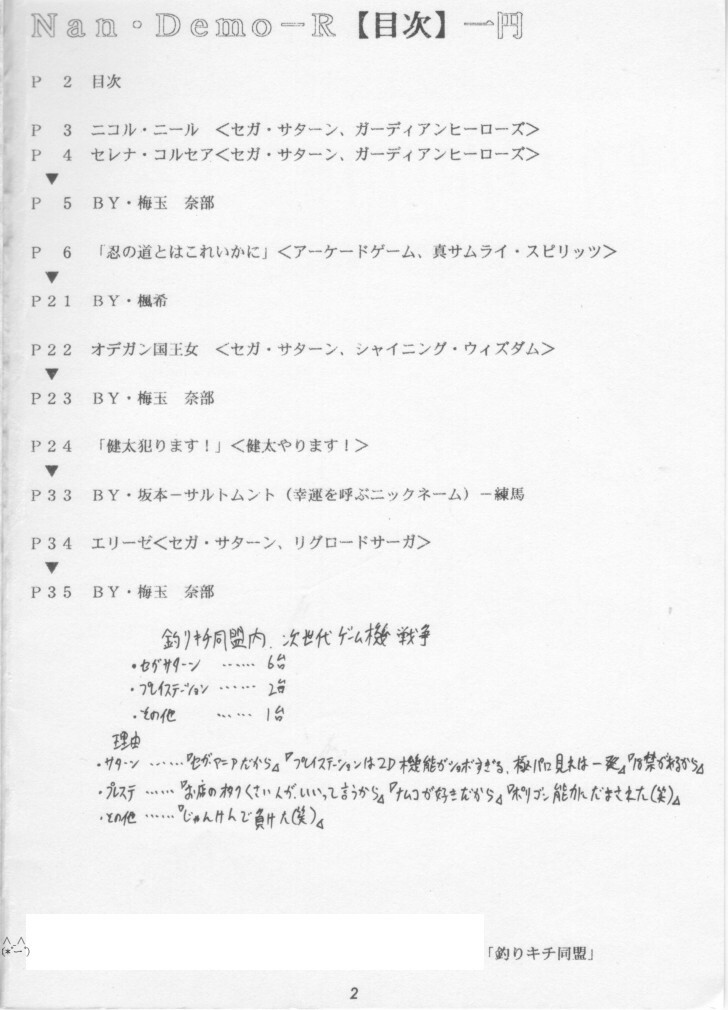 Nan・Demo－R【目次】一円
P 2 目次
P 3 ニコル・ニール ＜セガ・サターン、ガーディアンヒーローズ＞
P 4 セレナ・コルセア＜セガ・サターン、ガーディアンヒーローズ＞
▼
P 5 BY・梅玉 奈部
P 6 「忍の道とはこれいかに」＜アーケードゲーム、真サムライ・スピリッツ＞
▼
P21 BY・楓希
P22 オデガン国王女 ＜セガ・サターン、シャイニング・ウィズダム＞
▼
P23 BY・梅玉 奈部
P24 「健太犯ります！」＜健太やります！＞
▼
P33 BY・坂本－サルトムント（幸運を呼ぶニックネーム）－練馬
P34 エリーゼ＜セガ・サターン、リグロードサーガ＞
▼
P35 BY・梅玉 奈部
釣りキチ同盟内、次世代ゲーム機戦争
・セガサターン …… 6台
・プレイステーション …… 2台
・その他 …… 1台
理由
・サターン ……『セガマニアだから』『プレイステーションは2D機能がショボすぎる、極パロ見れば一発』『18禁があるから』
・プレステ ……『お店のオタクくさい人が、いいって言うから』『ナムコが好きだから』『ポリゴン能力にだまされた(笑)』
・その他 ……『じゃんけんで負けた(笑)』
「釣りキチ同盟」
2